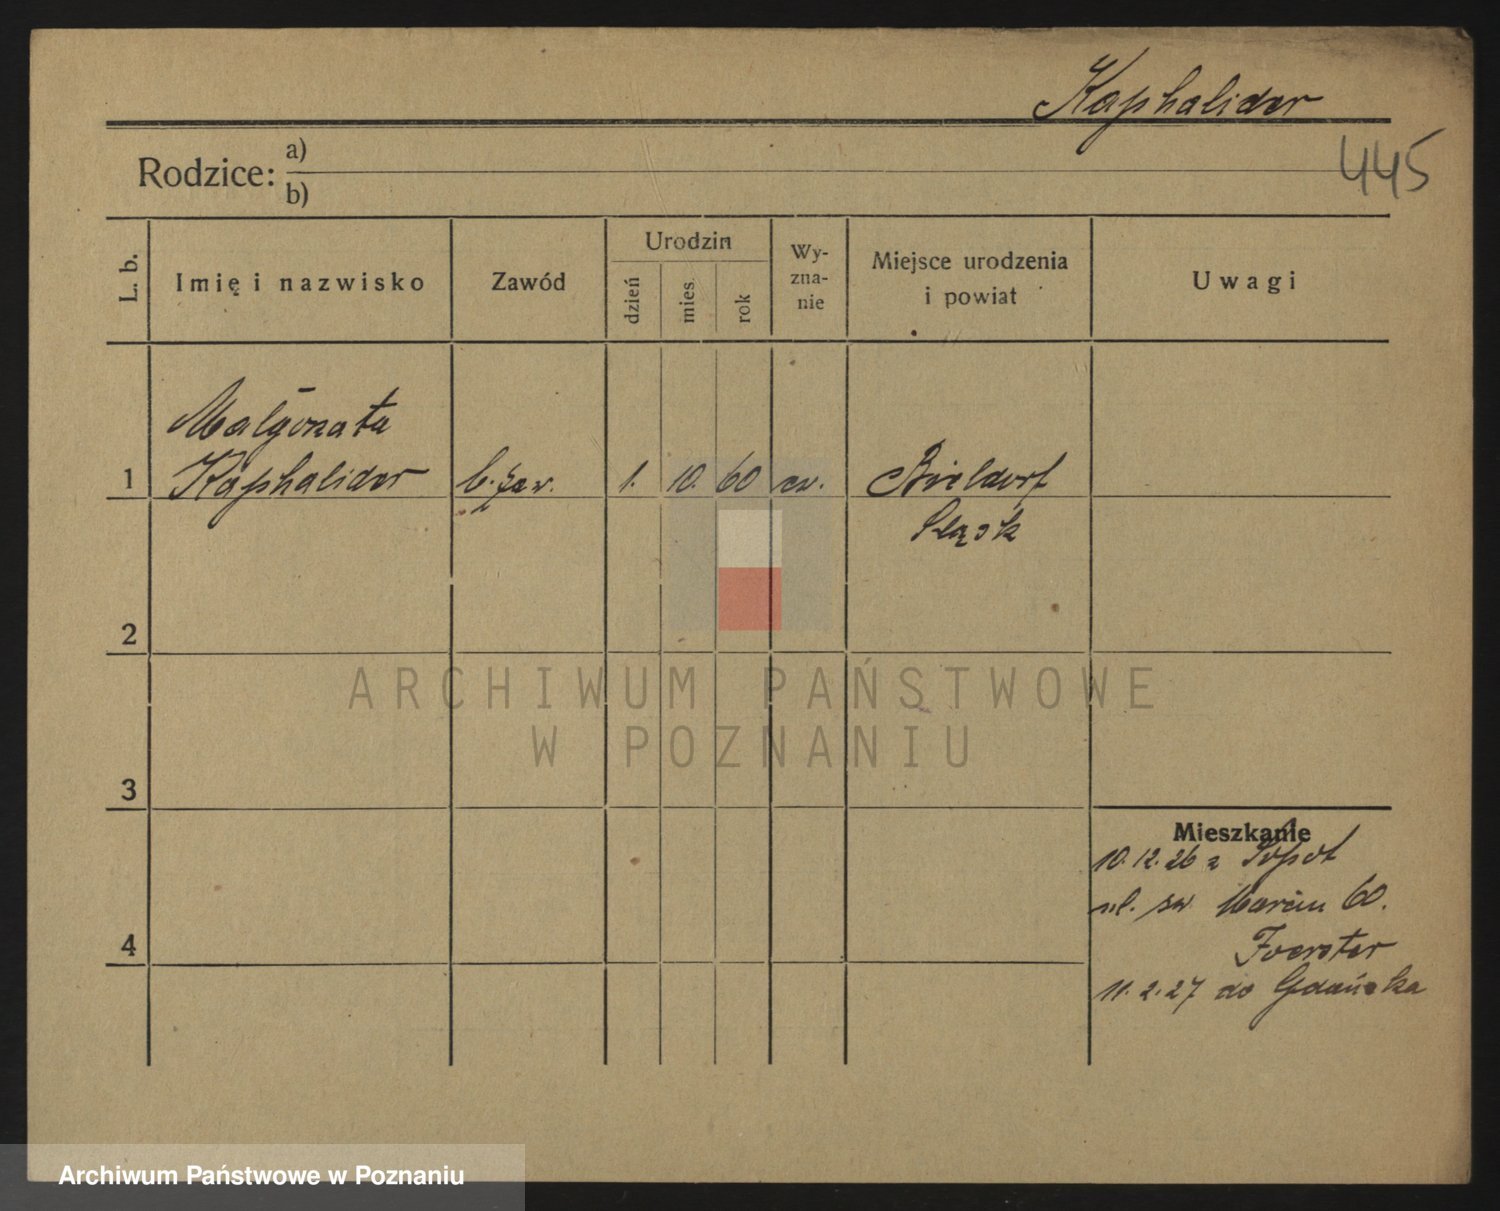 Kaphalider
445
Rodzice:
a)
b)
L. b.
Imię i nazwisko
Zawód
Urodzin
dzień
mies.
rok
Wy-
zna-
nie
Miejsce urodzenia
i powiat
Uwagi
Malgorzata
1 Kaphalider b. zaw. 1. 10. 60 ew. Bieldorf
Śląsk
2
ARCHIWUM PAŃSTWOWE
W POZNANIU
3
Mieszkanie
10.12.26 z Sopot
ul. św. Marcin 60.
4
Foerster
11.2.27 do Gdańska
Archiwum Państwowe w Poznaniu